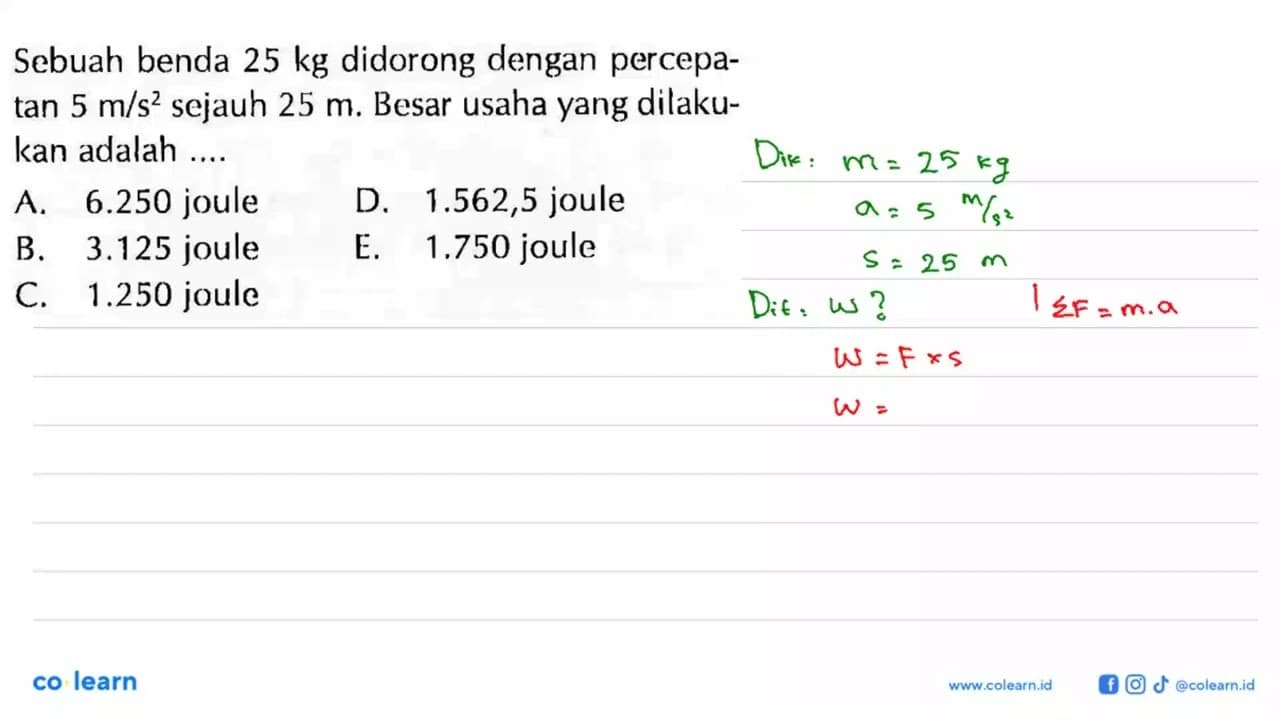 Sebuah benda 25 kg didorong dengan percepa-
tan 5 m/s² sejauh 25 m. Besar usaha yang dilaku-
kan adalah ....
A. 6.250 joule D. 1.562,5 joule
B. 3.125 joule E. 1.750 joule
C. 1.250 joule
Dik: m = 25 kg
a = 5 m/s²
s = 25 m
Dit: W? | ΣF = m.a
W = F × s
W =
co learn
www.colearn.id @colearn.id